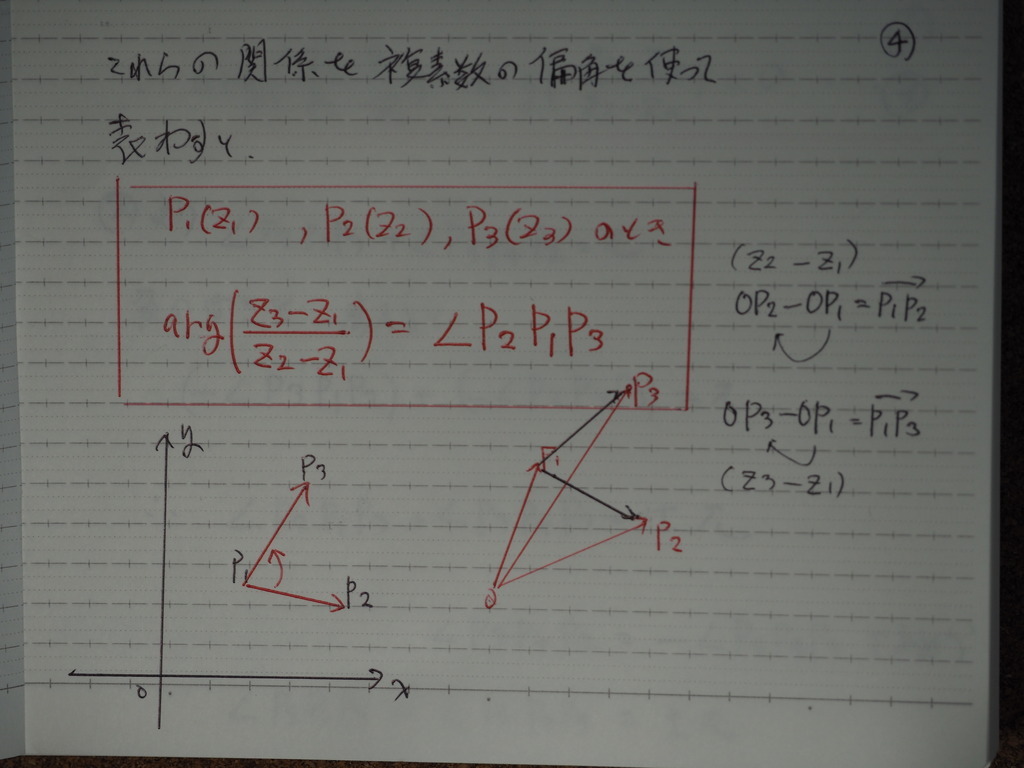 ④
これらの関係を複素数の偏角を使って
表わすと.
P₁(z₁), P₂(z₂), P₃(z₃) のとき
arg((z₃−z₁)/(z₂−z₁)) = ∠P₂P₁P₃
(z₂ − z₁)
OP₂−OP₁ = P₁P₂→
OP₃−OP₁ = P₁P₃→
(z₃−z₁)
y
P₃
P₁
P₂
O
x
P₃
P₁
P₂
O